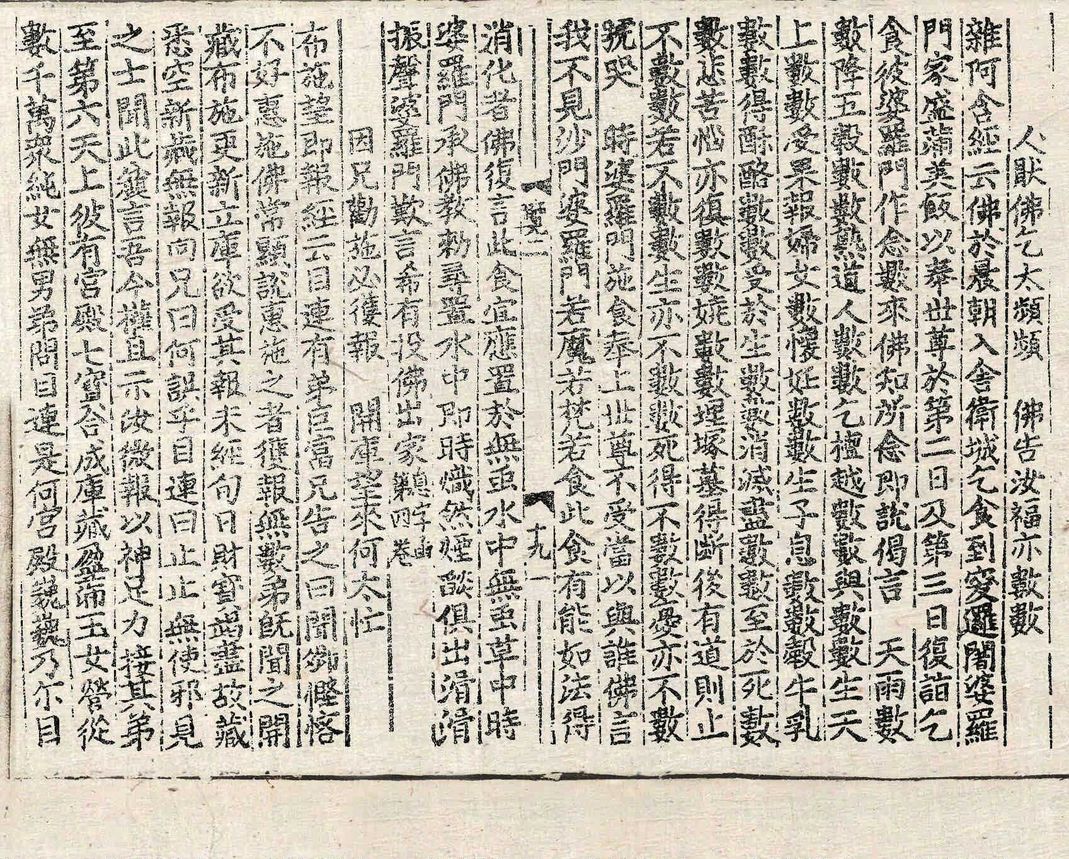 人猒佛乞太頻頻　佛告汝福亦數數
雜阿含經云佛於晨朝入舍衛城乞食到突邏闍婆羅
門家盛滿美飯以奉世尊於第二日及第三日復詣乞
食彼婆羅門作念數來佛知所念即說偈言　天雨數
數降五穀數數熟道人數數乞檀越數數與數數生天
上數數受果報婦女數懷妊數數生子息數數𤛗牛乳
數數得酥酪數數受於生數數消滅盡數數至於死數
數悲苦惱亦復數數燒數數埋塚墓得斷後有道則止
不數數若不數數生亦不數數死得不數數憂亦不數
號哭　時婆羅門施食奉上世尊不受當以與誰佛言
我不見沙門婆羅門若魔若梵若食此食有能如法得
十九
消化者佛復言此食宜應置於無虫水中無虫草中時
婆羅門承佛教勑尋置水中即時熾然煙燄俱出涓涓
振聲婆羅門歎言希有投佛出家總字函第四卷
因兄勸施必獲報　開庫望來何太忙
布施望即報經云目連有弟巨富兄告之曰聞卿慳悋
不好惠施佛常顯說惠施之者獲報無數弟既聞之開
藏布施更新立庫欲受其報未經旬日財寶竭盡故藏
悉空新藏無報向兄曰何誤乎目連曰止止無使邪見
之士聞此麁言吾今權且示汝微報以神足力接其弟
至第六天上彼有宮殿七寶合成庫藏盈滿玉女營從
數千萬眾純女無男弟問目連是何宮殿巍巍乃尔目